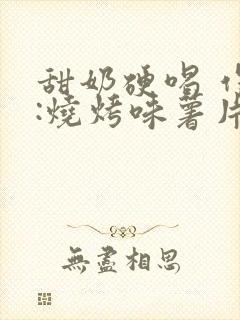 甜奶硬唱
:燒烤味薯片
無盡相思